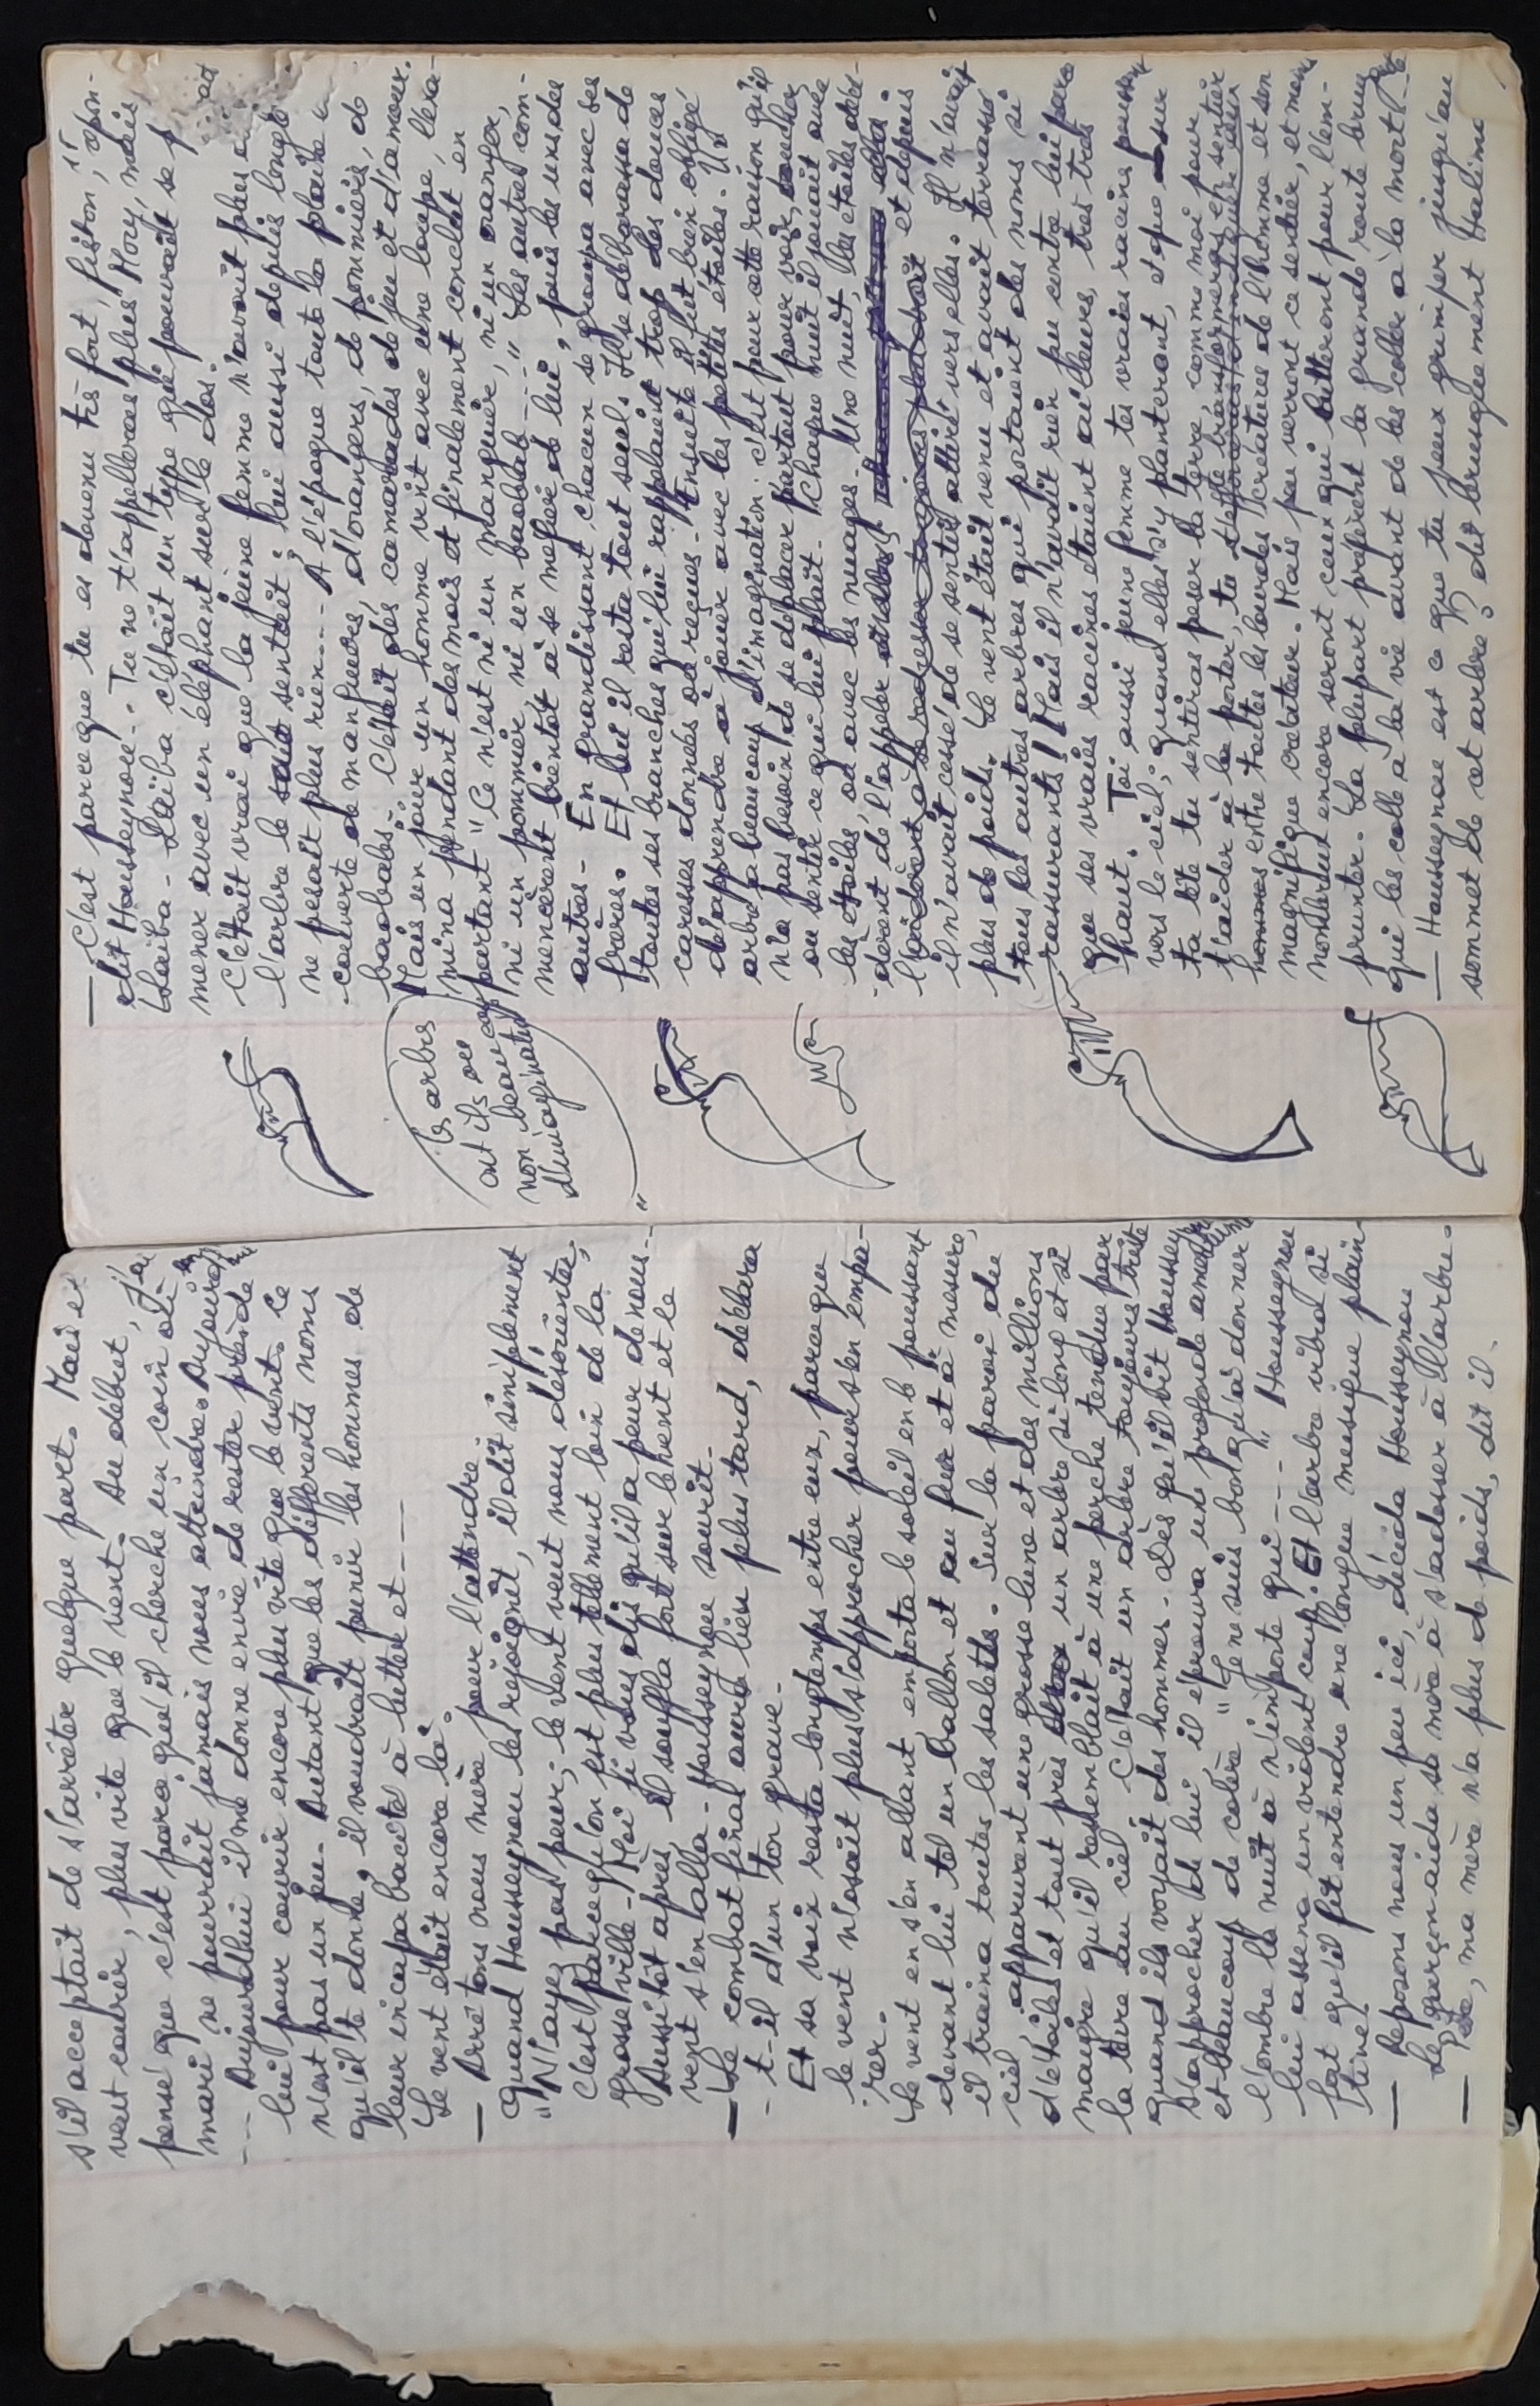 s'il acceptait de s'arrêter quelque part. Mais il
veut courir, plus vite que le vent. Au début, j'ai
pensé que c'est parce qu'il cherche un coin où
mari ne pourrait jamais nous atteindre. Aujourd'
--- Aujourd'hui il me donne envie de rester près de
lui pour courir encore plus vite que le vent. Ce
n'est pas un jeu. Autant que les différents noms
qu'il te donne, il voudrait punir les hommes de
leur incapabacité à lutter et ----
Le vent était encore là.
— Arrêtons nous mère pour l'attendre.
Quand Housseynou les rejoignit, il dit simplement
"N'ayez pas peur; le vent veut nous désorienter,
c'est parce qu'on est plus tellement loin de la
grosse ville - Moi je vous dis qu'il a peur de nous--
Aussitôt après, il souffla fort sur le vent et le
vent s'en alla - Housseynou sourit.
— Le combat final aura lieu plus tard, déclara
- t-il d'un ton grave.
Et sa voix resta longtemps entre eux, parce que
le vent n'osait plus s'approcher pour s'en empa-
rer.
Le vent en s'en allant, emporta le soleil en le poussant
devant lui tel un ballon et au fur et à mesure,
il traina toutes les saletés. Sur la paroi du
ciel, apparurent une grosse lune et des millions
d'étoiles et tout près un arbre si long et si
maigre qu'il ressemblait à une perche tendue par
la terre au ciel. C'était un arbre toujours triste
quand il voyait des hommes. Dès qu'il vit Houssey
s'approcher de lui, il éprouva une profonde amertume
et beaucoup de colère "Je ne suis bon qu'à donner
l'ombre la nuit à n'importe qui --- " Housseynou
lui assena un violent coup. Et l'arbre vibra si
fort qu'il fit entendre une longue musique plain-
tive!
— Reposons nous un peu ici, décida Housseynou
Le garçon aida sa mère à s'adosser à l'arbre.
— , ma mère n'a plus de poids, dit il.
— C'est parce que tu es devenu très fort, fiston,
dit Housseynou. Tu ne t'appelleras plus Mory, mais
Laïba - Laïba c'était un type qui pouvait se p
mener avec un éléphant sur le dos.
C'était vrai que la jeune femme n'avait plus
l'arbre le sentait; lui aussi depuis long
ne pesait plus rien --- A l'époque toute la plaine
couverte de manguiers, d'orangers, de pommiers, de
baobabs. C'était des camarades de jeu et d'amour.
Mais un jour un homme vint avec une loupe, l'exa-
mina pendant des mois et finalement conclut en
partant "Ce n'est ni un manguier, ni un oranger,
ni un pommier, ni un baobab --- " Les autres com-
mencèrent bientôt à se méfier de lui, puis les uns des
autres - En grandissant, chacun se groupa avec ses
frères. Et lui il resta tout seul. Il se débarassa de
toutes ses branches qui lui rappelaient trop des douces
caresses données ou reçues - Ensuite il fut bien obligé
d'apprendre à jouer avec les petites étoiles. Un
arbre a beaucoup d'imagination: c'est pour cette raison qu'il
n'a pas besoin de se déplacer partout pour voir, toucher
ou sentir ce qui lui plait. Chaque nuit il jouait avec
les étoiles, ou avec les nuages. Une nuit, les étoiles déci-
dèrent de l'appeler
l'aidèrent à se redresser toujours plus haut et depuis
il n'avait cessé de se sentir attiré vers elles. Il n'avait
plus de poids. Le vent était venu et avait terrassé
tous les autres arbres qui portaient des noms si
rassurants!! Mais il n'avait rien pu contre lui parce
que ses vraies racines étaient ailleurs, très très
haut. Toi aussi jeune femme tes vraies racines poussent
vers le ciel; quand elles s'y planteront, et que sur
ta tête tu sentiras peser la terre, comme moi pour
t'aider à la porter, tu te transformeras en sentier
hommes entre toutes les lourdes créatures de l'homme et son
magnifique créateur. Mais peu verront ce sentier, et moins
nombreux encore seront ceux qui lutteront pour l'em-
prunter. La plupart préfèrent la grande route
qui les colle à la vie avant de les coller à la mort
— Housseynou est ce que tu peux grimper jusqu'au
sommet de cet arbre? dit brusquement Halima
Les arbres
ont ils ou
non beaucoup
d'imagination